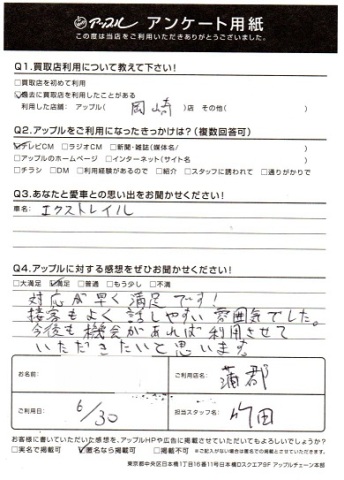 アップル アンケート用紙
この度は当店をご利用いただきありがとうございました。
Q1.買取店利用について教えて下さい!
□買取店を初めて利用
☑過去に買取店を利用したことがある
利用した店舗: アップル( 岡崎 )店 その他( )
Q2.アップルをご利用になったきっかけは?(複数回答可)
☑テレビCM □ラジオCM □新聞・雑誌(媒体名/ )
□アップルのホームページ □インターネット(サイト名 )
□チラシ □DM □利用経験があるので □紹介 □スタッフに誘われて □通りがかりで
Q3.あなたと愛車との思い出をお聞かせください!
車名: エクストレイル
Q4.アップルに対する感想をぜひお聞かせください!
□大満足 ☑満足 □普通 □もう少し □不満
対応が早く満足です!
接客もよく話しやすい雰囲気でした。
今後も機会があれば利用させて
いただきたいと思います。
お名前: ご利用店名: 蒲郡
ご利用日: 6/30 担当スタッフ名: 竹田
お客様に書いていただいた感想を、アップルHPや広告に掲載させていただいてもよろしいでしょうか?
□実名で掲載可 ☑匿名なら掲載可 □掲載不可 ※ご記入がない場合は匿名での掲載とさせていただきます。
東京都中央区日本橋1丁目16番11号日本橋Dスクエア5F アップルチェーン本部